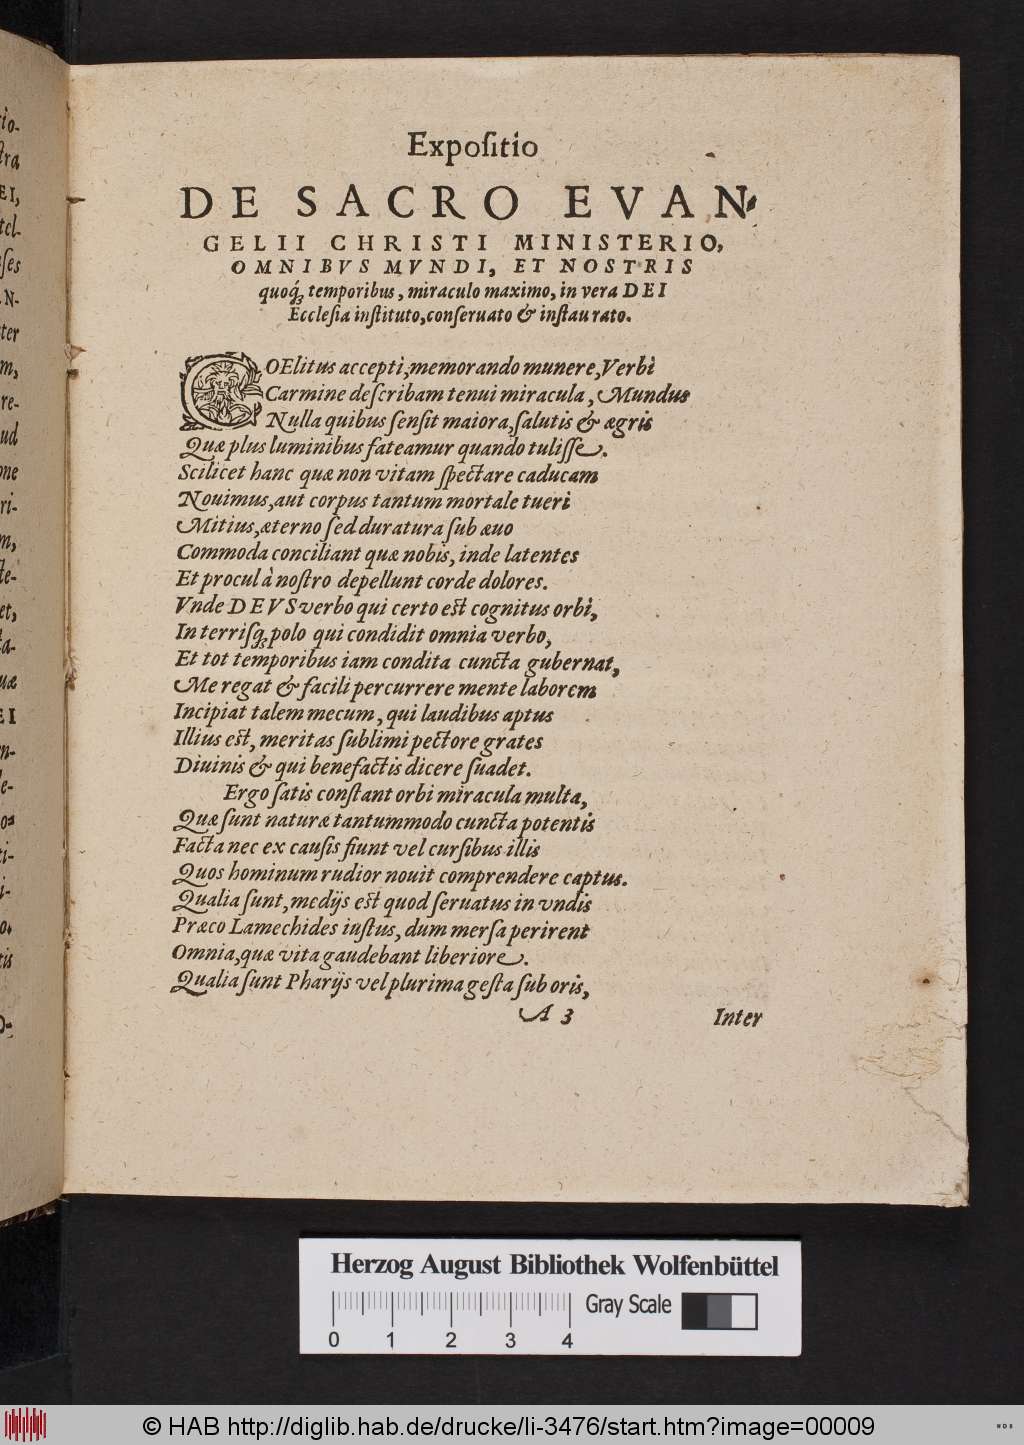 Expoſitio
DE SACRO EVAN-
GELII CHRISTI MINISTERIO,
OMNIBVS MVNDI, ET NOSTRIS
quoq́ꝫ temporibus, miraculo maximo, in vera DEI
Eccleſia inſtituto, conſeruato & inſtaurato.
COElitus accepti, memorando munere, Verbi
Carmine deſcribam tenui miracula, Mundus
Nulla quibus ſenſit maiora, ſalutis & ægris
Quæ plus luminibus fateamur quando tuliſſe.
Scilicet hanc quæ non vitam ſpectare caducam
Nouimus, aut corpus tantum mortale tueri
Mitius, æterno ſed duratura ſub æuo
Commoda conciliant quæ nobis, inde latentes
Et procul à noſtro depellunt corde dolores.
Vnde DEVS verbo qui certo eſt cognitus orbi,
In terriſqꝫ polo qui condidit omnia verbo,
Et tot temporibus iam condita cuncta gubernat,
Me regat & facili percurrere mente laborem
Incipiat talem mecum, qui laudibus aptus
Illius eſt, meritas ſublimi pectore grates
Diuinis & qui benefactis dicere ſuadet.
Ergo ſatis conſtant orbi miracula multa,
Quæ ſunt naturæ tantummodo cuncta potentis
Facta nec ex cauſis fiunt vel curſibus illis
Quos hominum rudior nouit comprendere captus.
Qualia ſunt, medijs eſt quod ſeruatus in vndis
Præco Lamechides iuſtus, dum merſa perirent
Omnia, quæ vita gaudebant liberiore.
Qualia ſunt Pharijs vel plurima geſta ſub oris,
A 3 Inter
Herzog August Bibliothek Wolfenbüttel
0 1 2 3 4 Gray Scale
© HAB http://diglib.hab.de/drucke/li-3476/start.htm?image=00009